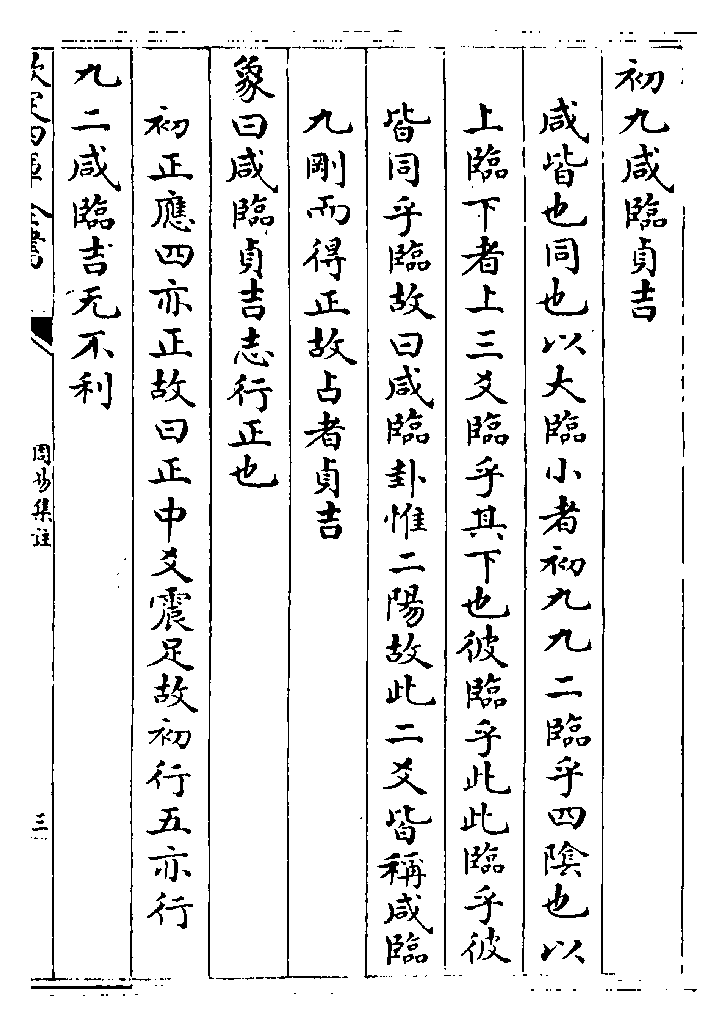 初九咸臨貞吉
咸皆也同也以大臨小者初九九二臨乎四陰也以
上臨下者上三爻臨乎其下也彼臨乎此此臨乎彼
皆同乎臨故曰咸臨卦惟二陽故此二爻皆稱咸臨
九剛而得正故占者貞吉
象曰咸臨貞吉志行正也
初正應四亦正故曰正中爻震足故初行五亦行
九二咸臨吉无不利
欽定四庫全書
周易集註
三